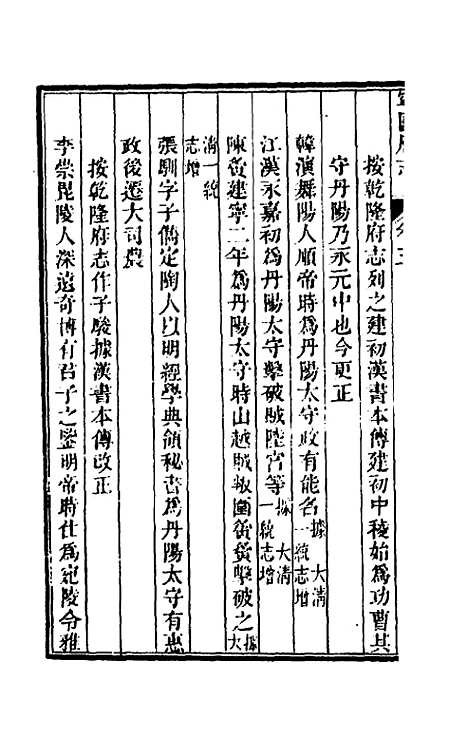 寧國府志
卷三
按乾隆府志列之建初漢書本傳建初中稜始為功曹其
守丹陽乃永元中也今更正
韓演舞陽人順帝時為丹陽太守政有能名據大清一統志增
江漢永嘉初為丹陽太守擊破賊陸宮等據大清一統志增
陳夤建寧二年為丹陽太守時山越賊叛圍夤夤擊破之據大
清一統志增
張馴字子儁定陶人以明經學典領祕書為丹陽太守有惠
政後遷大司農
按乾隆府志作子駿據漢書本傳改正
李崇毘陵人深遠奇博有君子之鑒明帝時仕為宛陵令雅